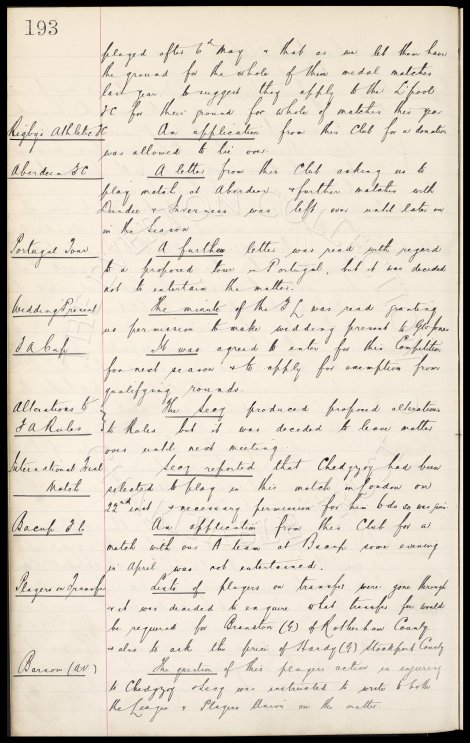 193
played after 6th May & that as we let them have
the ground for the whole of their medal matches
last year to suggest they apply to the L'pool
F C for their ground for whole of matches this year
Rigby's Athletic FC An application from this Club for a donation
was allowed to lie over.
Aberdeen F C A letter from this Club asking us to
play match at Aberdeen & further matches with
Dundee & Inverness was left over until later on
in the Season
Portugal Tour A further letter was read with regard
to a proposed tour in Portugal, but it was decided
not to entertain the matter.
Wedding Present The minute of the F L was read granting
us permission to make wedding present to
F A Cup It was agreed to enter for this Competition
for next season & to apply for exemption from
qualifying rounds.
Alterations to The Secy produced proposed alterations
F A Rules to Rules but it was decided to leave matter
over until next meeting
International Trial Secy reported that Chedgzoy had been
Match selected to play in this match in London on
22nd inst & necessary permission for him to do so was
Bacup F C An application from this Club for a
match with our A team at Bacup some evening
in April was not entertained.
Players on Transfer Lists of players on transfer were gone through
& it was decided to enquire what transfer fee would
be required for Branston (G) of Rotherham County
& also to ask the price of Hardy (G) Stockport County
Barson (AV) The question of this players action in injuring
to Chedgzoy & Secy was instructed to write to both
the League & Players Union on the matter.
THE EVERTON COLLECTION